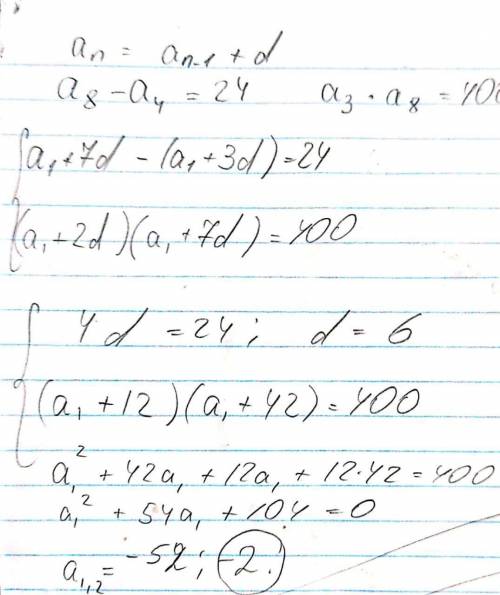 aₙ = aₙ₋₁ + d
a₈ - a₄ = 24 a₃ · a₈ = 400
{ a₁ + 7d - (a₁ + 3d) = 24
(a₁ + 2d)(a₁ + 7d) = 400
{ 4d = 24; d = 6
(a₁ + 12)(a₁ + 42) = 400
a₁² + 42a₁ + 12a₁ + 12·42 = 400
a₁² + 54a₁ + 104 = 0
a₁,₂ = -52; -2.